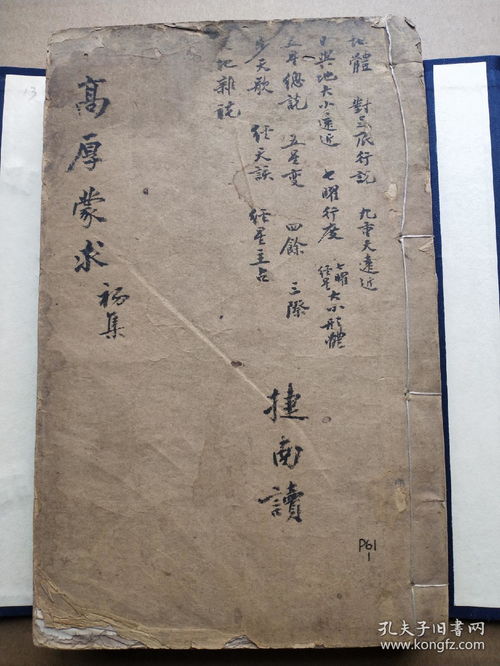 地體 對足底行說 九重天遠近
日與地大小遠近 七曜行度 七曜經星大小形體
五星總說 五星變 四餘 三際
步天歌 經天訣 經星主占
天地雜說
高厚蒙求 初集
捷南讀
P61
1
13
孔夫子旧书网
www.kongfz.com